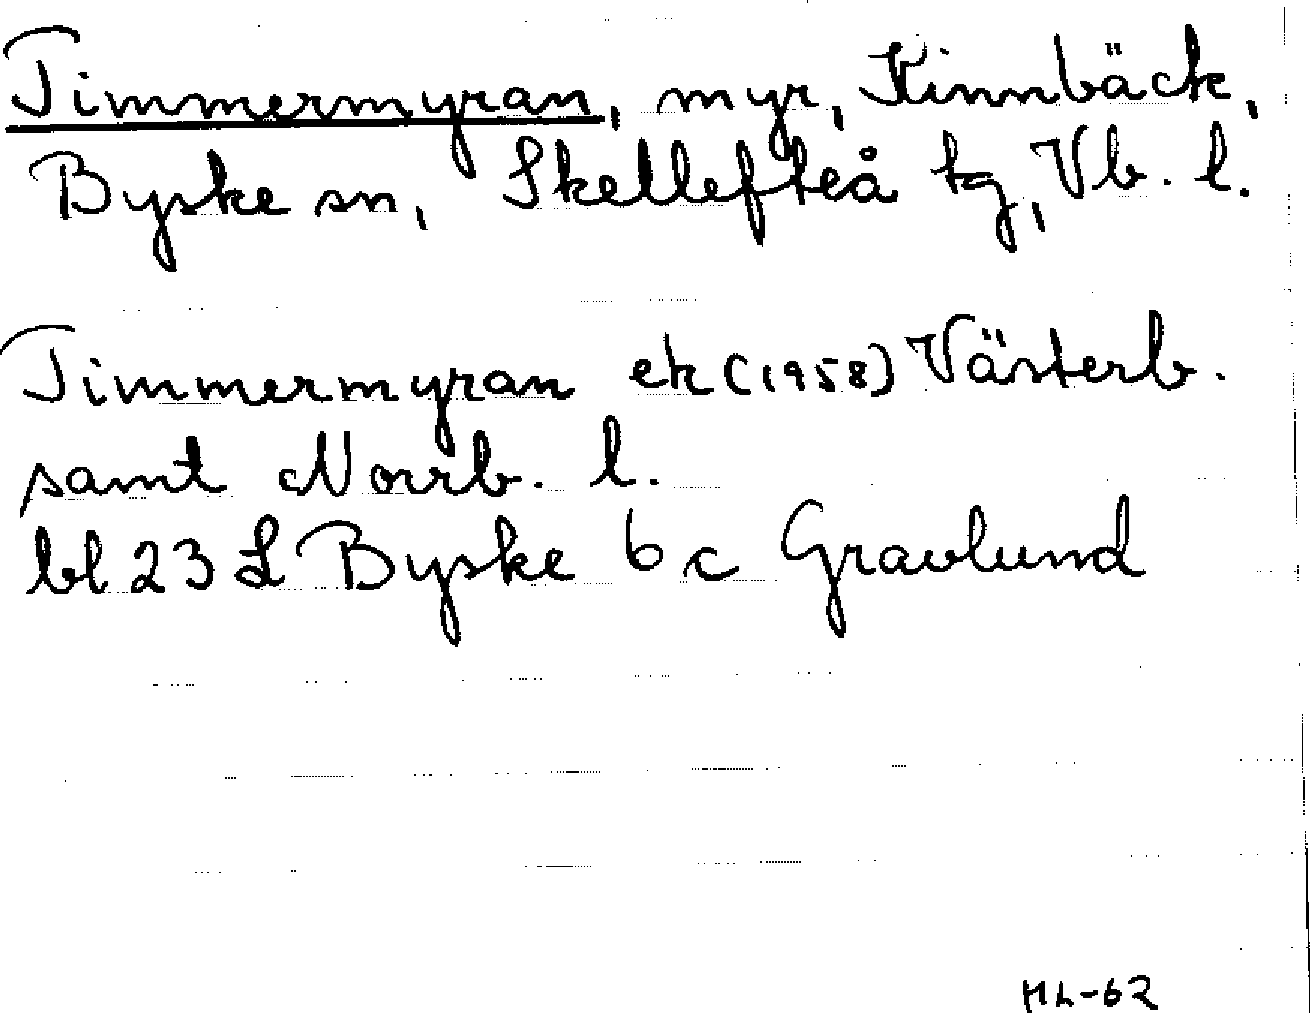 Timmermyran, myr, Kinnbäck,
Byske sn, Skellefteå tg, Vb. l.
Timmermyran ek (1958) Västerb.
samt Norrb. l.
bl 23 L Byske 6 c Gravlund
HL-62